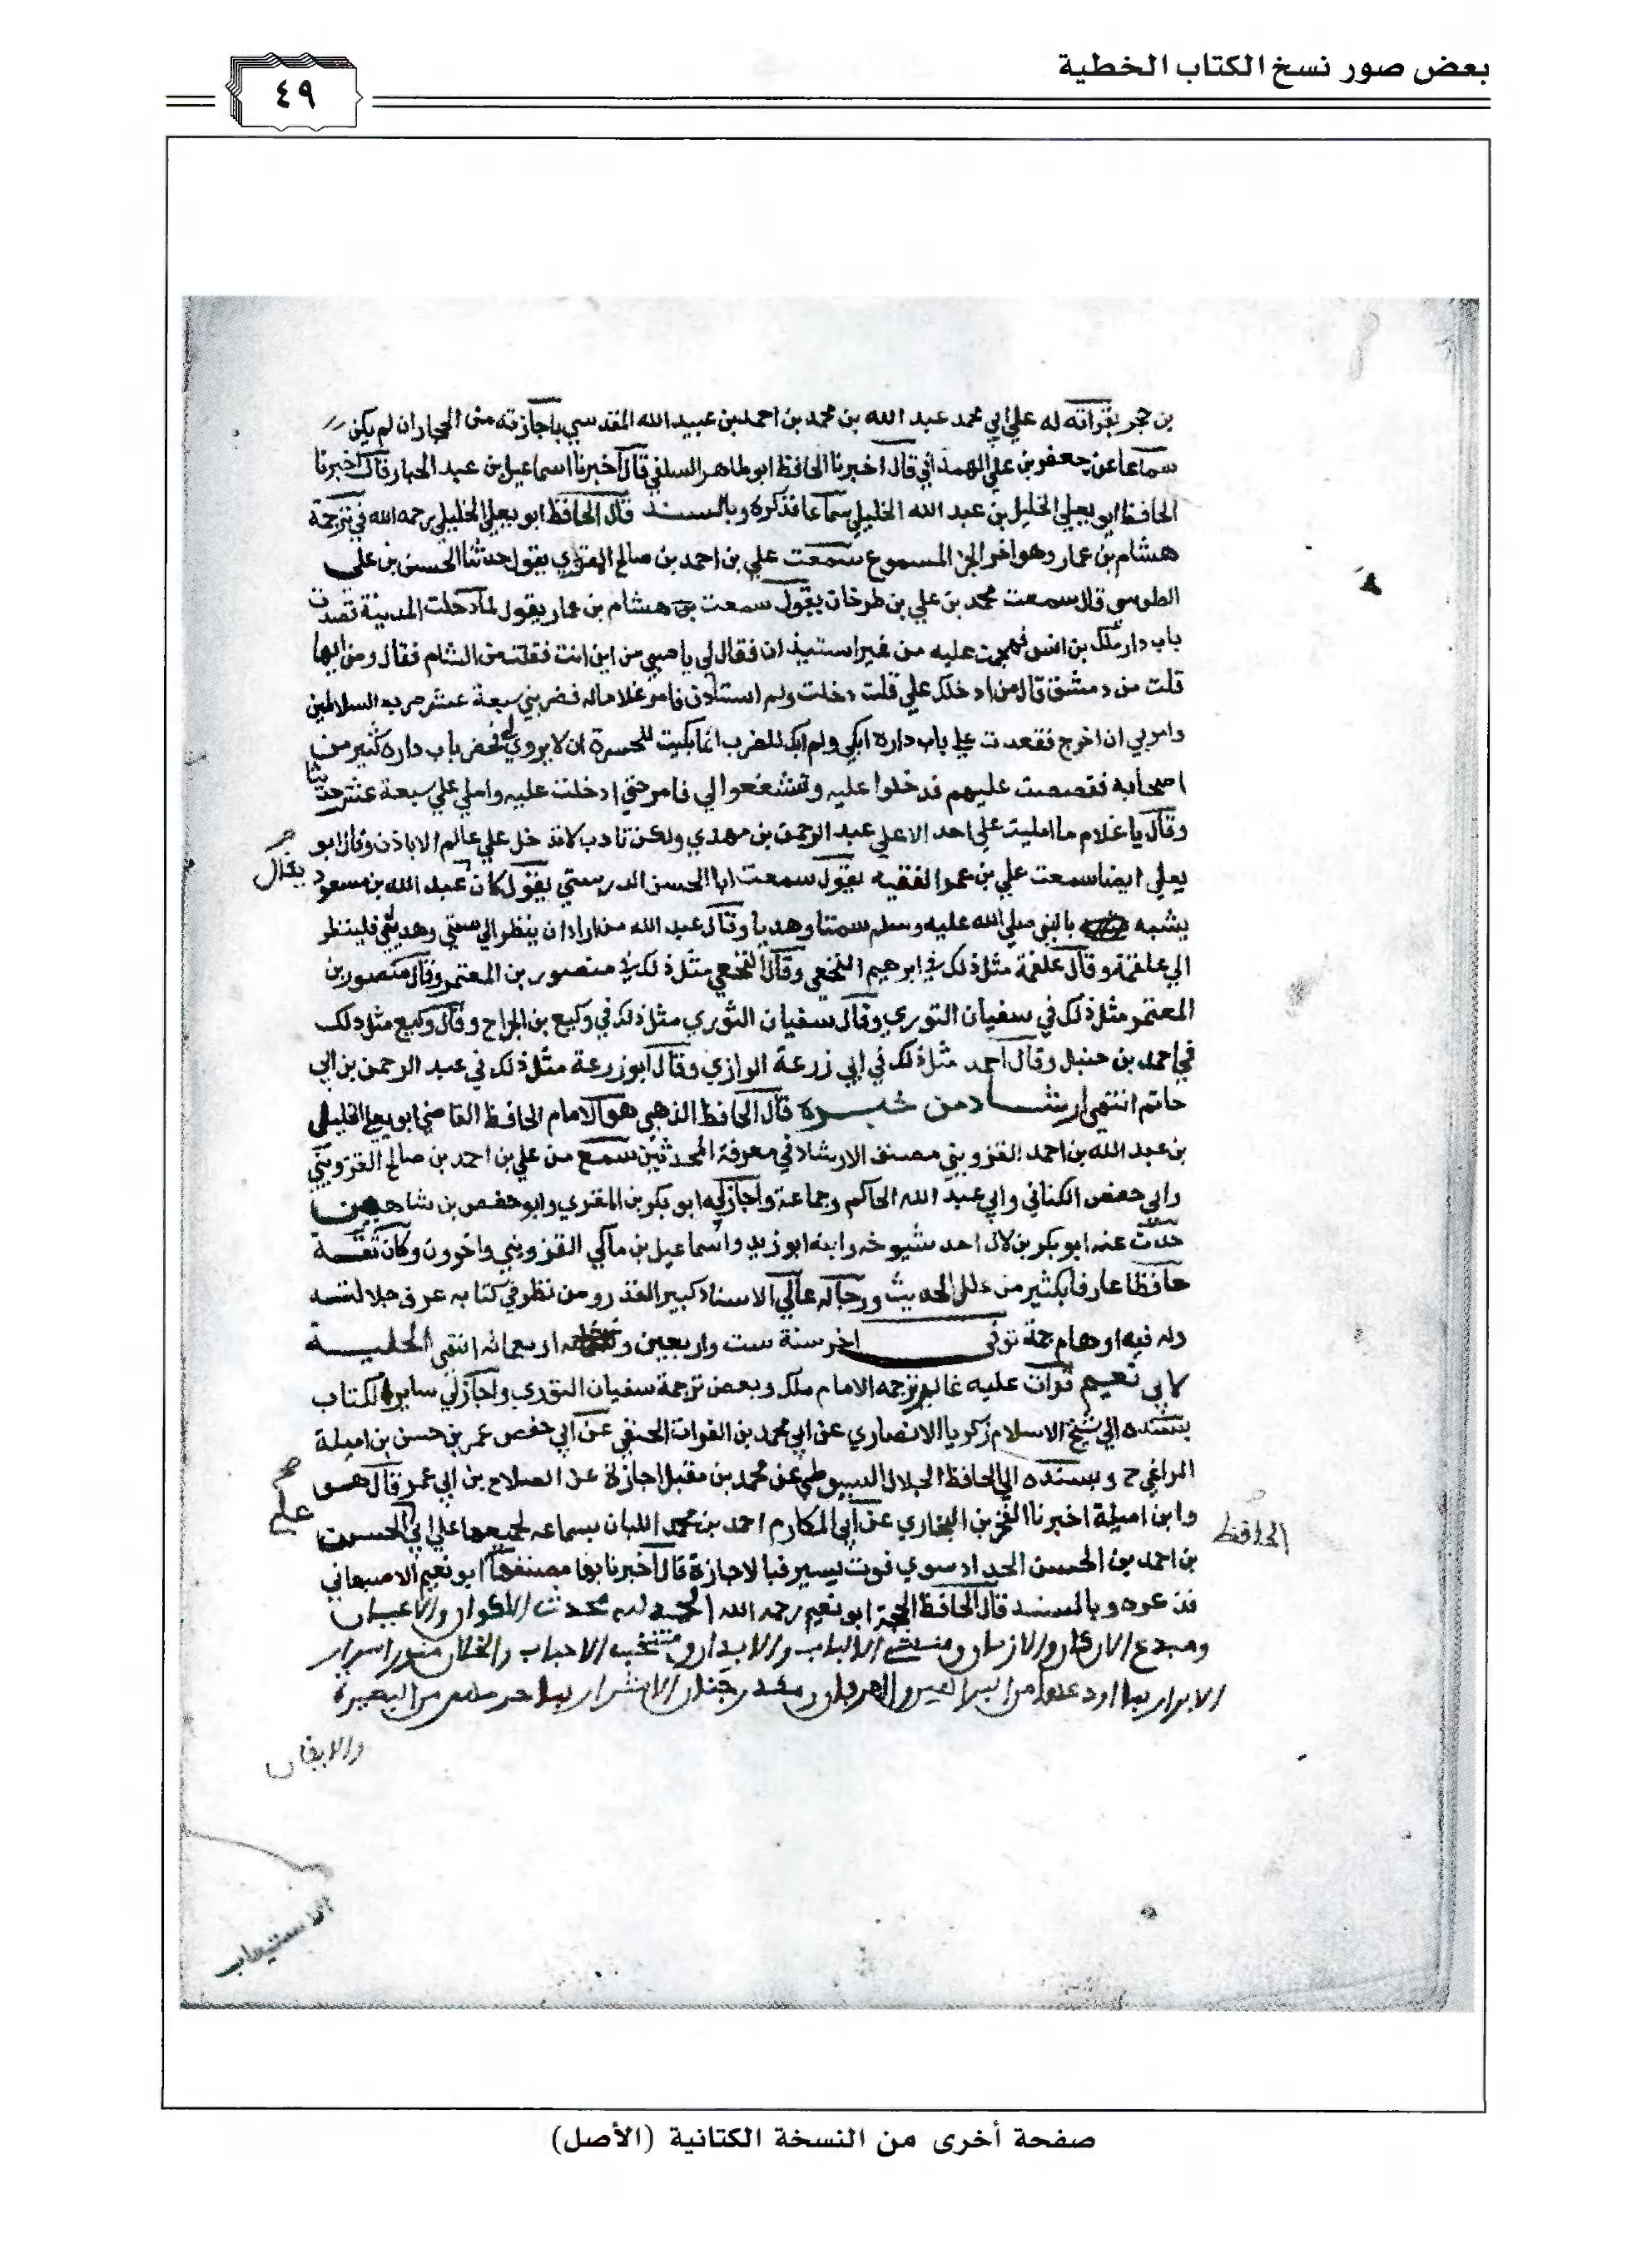 بعض صور نسخ الكتاب الخطية
٤٩
بن حجر بقراته له علي ابي محمد عبد الله بن محمد بن احمد بن عبيد الله المقدسي باجازته من الحجار ان لم يكن
سماعا عن جعفر بن علي الهمداني قال اخبرنا الحافظ ابو طاهر السلفي قال اخبرنا اسماعيل بن عبد الجبار قال اخبرنا
الحافظ ابو يعلي الخليل بن عبد الله الخليلي سماعا فذكره وبالسند قال الحافظ ابو يعلي الخليلي رحمه الله في ترجمة
هشام بن عمار وهو اخر الجز المسموع سمعت علي بن احمد بن صالح المقري يقول حدثنا الحسن بن علي
الطوسي قال سمعت محمد بن علي بن طرخان يقول سمعت هشام بن عمار يقول لما دخلت المدينة قصدت
باب دار ملك بن انس فهجمت عليه من غير استيذان فقال لي يا صبي من اين انت فقلت من الشام فقال ومن ايها
قلت من دمشق قال من ادخلك علي قلت دخلت ولم استاذن فامر غلاما له فضربني سبعة عشر ضربه السلاطين
وامر بي ان اخرج فقعدت علي باب داره ابكي ولم ابك للضرب انما بكيت للحسرة ان لا يروي لي فحضر باب داره كثير من
اصحابه فقصصت عليهم فدخلوا عليه وتشفعوا لي فامر حتي ادخلت عليه واملي علي سبعة عشر حديثا
وقال يا غلام ما امليت علي احد الا علي عبد الرحمن بن مهدي ولكن تادب لا تدخل علي عالم الا باذن وقال ابو
يعلي ايضا سمعت علي بن عمر الفقيه يقول سمعت ابا الحسن الدرستي يقول كان عبد الله بن مسعود
يقال
يشبه بالنبي صلي الله عليه وسلم سمتا وهديا وقال عبد الله من اراد ان ينظر الي سمتي وهديي فلينظر
الي علقمة وقال علقمة مثل ذلك في ابرهيم النخعي وقال النخعي مثل ذلك في منصور بن المعتمر وقال منصور بن
المعتمر مثل ذلك في سفيان الثوري وقال سفيان الثوري مثل ذلك في وكيع بن الجراح وقال وكيع مثل ذلك
في احمد بن حنبل وقال احمد مثل ذلك في ابي زرعة الرازي وقال ابو زرعة مثل ذلك في عبد الرحمن بن ابي
حاتم انتهي ارشاد من خبره قال الحافظ الذهبي هو الامام الحافظ القاضي ابو يعلي الخليلي
بن عبد الله بن احمد القزويني مصنف الارشاد في معرفة المحدثين سمع من علي بن احمد بن صالح القزويني
وابي حفص الكتاني وابي عبد الله الحاكم وجماعة واجاز له ابو بكر بن المقري وابو حفص بن شاهين
حدث عنه ابو بكر بن لال احد شيوخه وابنه ابو زيد واسماعيل بن ماكي القزويني واخرون وكان ثقة
حافظا عارفا بكثير من علل الحديث ورجاله عالي الاسناد كبير القدر ومن نظر في كتابه عرف جلالته
وله فيه اوهام جمة توفي اخر سنة ست واربعين و اربعمائه انتهي الحلية
لابي نعيم قرات عليه غالب ترجمه الامام ملك وبعض ترجمة سفيان الثوري واجاز لي سايره الكتاب
بسنده الي شيخ الاسلام زكريا الانصاري عن ابي محمد بن الفرات الحنفي عن ابي حفص عمر بن حسن بن اميلة
المراغي ح وبسنده الي الحافظ الجلال السيوطي عن محمد بن مقبل اجازة عن الصلاح بن ابي عمر قال هو
وابن اميلة اخبرنا الفخر بن البخاري عن ابي المكارم احمد بن محمد اللبان بسماعه لجميعها علي ابي الحسن
علي
الحافظ
بن احمد بن الحسن الحداد سوي فوت يسير فبالاجازة قال اخبرنا بها مصنفها ابو نعيم الاصبهاني
فذكره وبالسند قال الحافظ الحجة ابو نعيم رحمه الله الحمد لله محدث الاكوان والاعيان
ومبدع الاركان والازمان ومنشئ الالباب والابدان ومنتخب الاحباب والخلان منور اسرار
الابرار بما اودعها من البراهين والعرفان ومكدر جنان الاشرار بما حرمهم من البصيرة
والايقان
الاستيعاب
صفحة أخرى من النسخة الكتانية (الأصل)